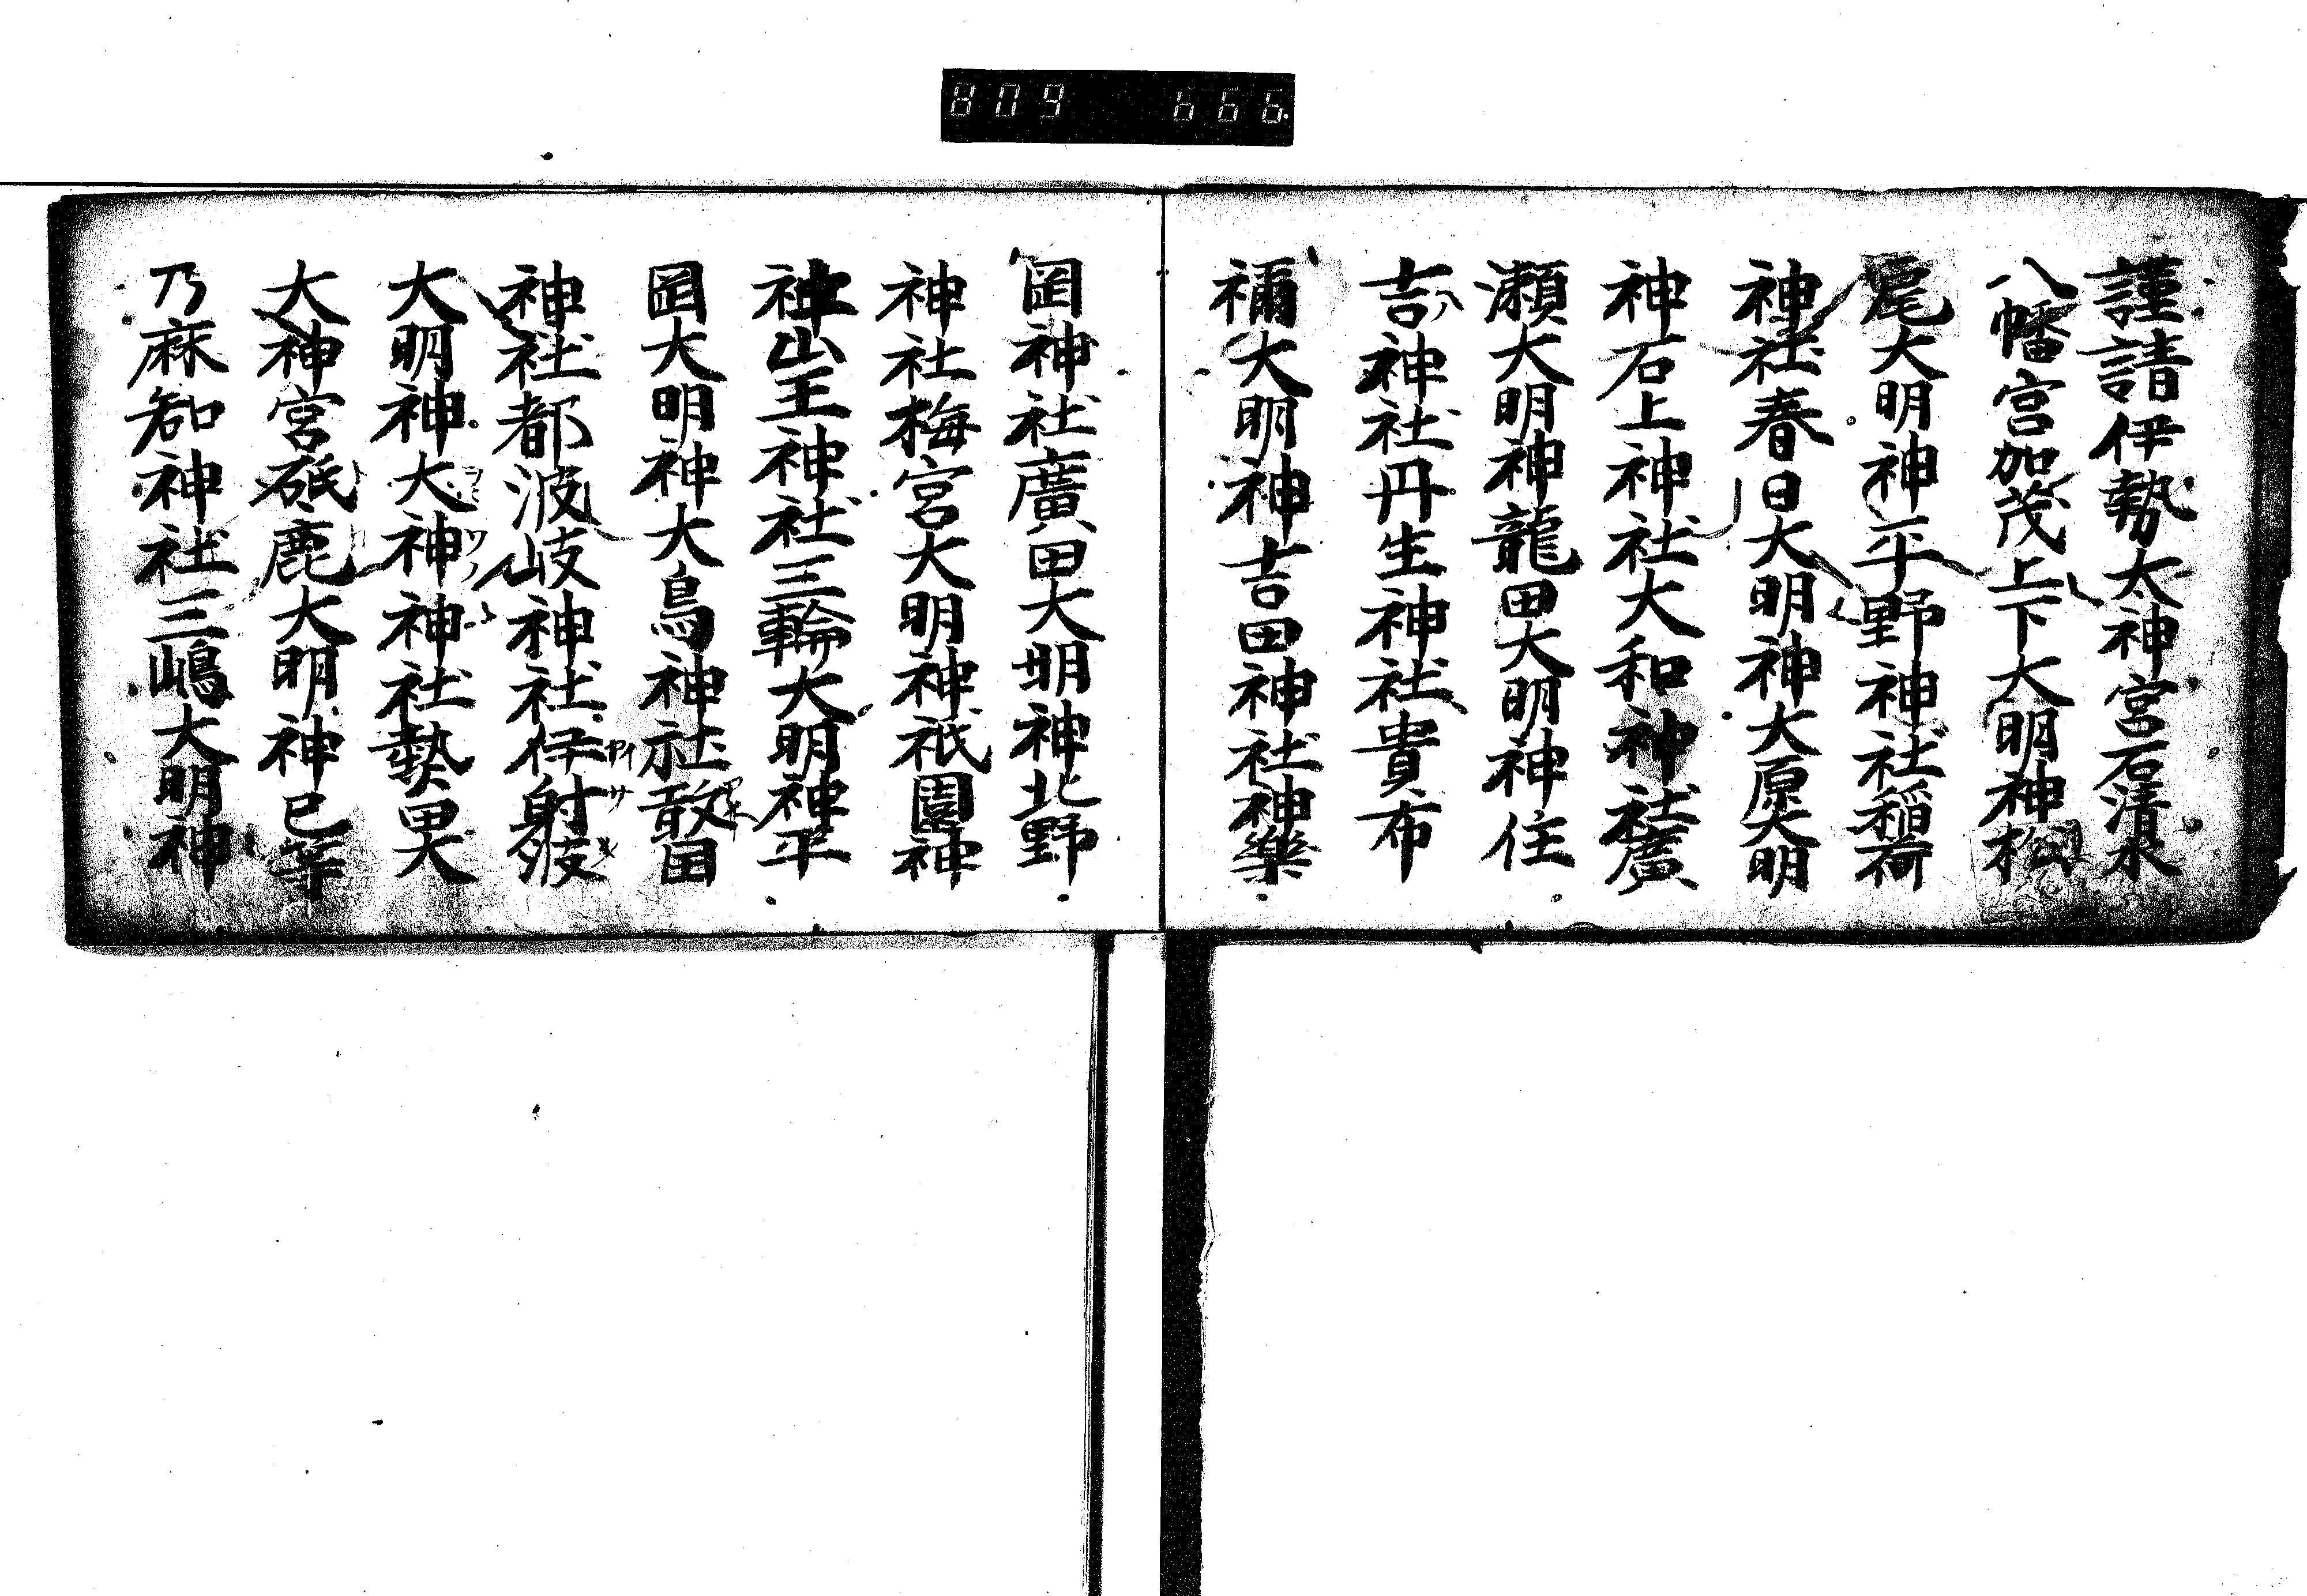 809 666
謹請伊勢太神宮石清水
八幡宮加茂上下大明神松
尾大明神平野神社稲荷
神社春日大明神大原大明
神石上神社大和神社廣
瀬大明神龍田大明神住
吉神社丹生神社貴布
禰大明神吉田神社神樂
岡神社廣田大明神北野
神社梅宮大明神祇園神
神山王神社三輪大明神平
岡大明神大鳥神社敢田
神社都波岐神社伊射波
大明神大神神社熱田
大神宮砥鹿大明神已等
乃麻知神社三嶋大明神